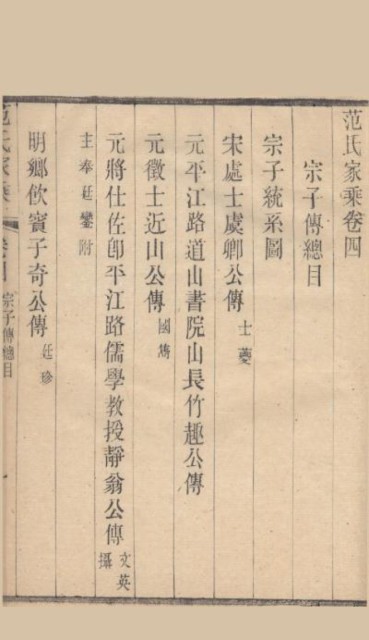 范氏家乘卷四
宗子傳總目
宗子統系圖
宋處士虞卿公傳 士夔
元平江路道山書院山長竹趣公傳
元徵士近山公傳 國雋
元將仕佐郎平江路儒學教授靜翁公傳 文英 攝
主奉廷鑾附
明鄉飲賓子奇公傳 廷珍
范氏家乘 卷四 宗子傳總目